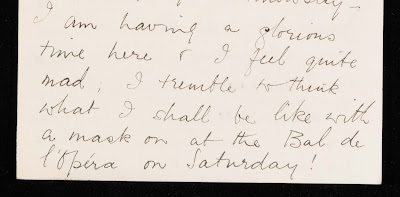 I am having a glorious
time here & I feel quite
mad; I tremble to think
what I shall be like with
a mask on at the Bal de
l'Opéra on Saturday!